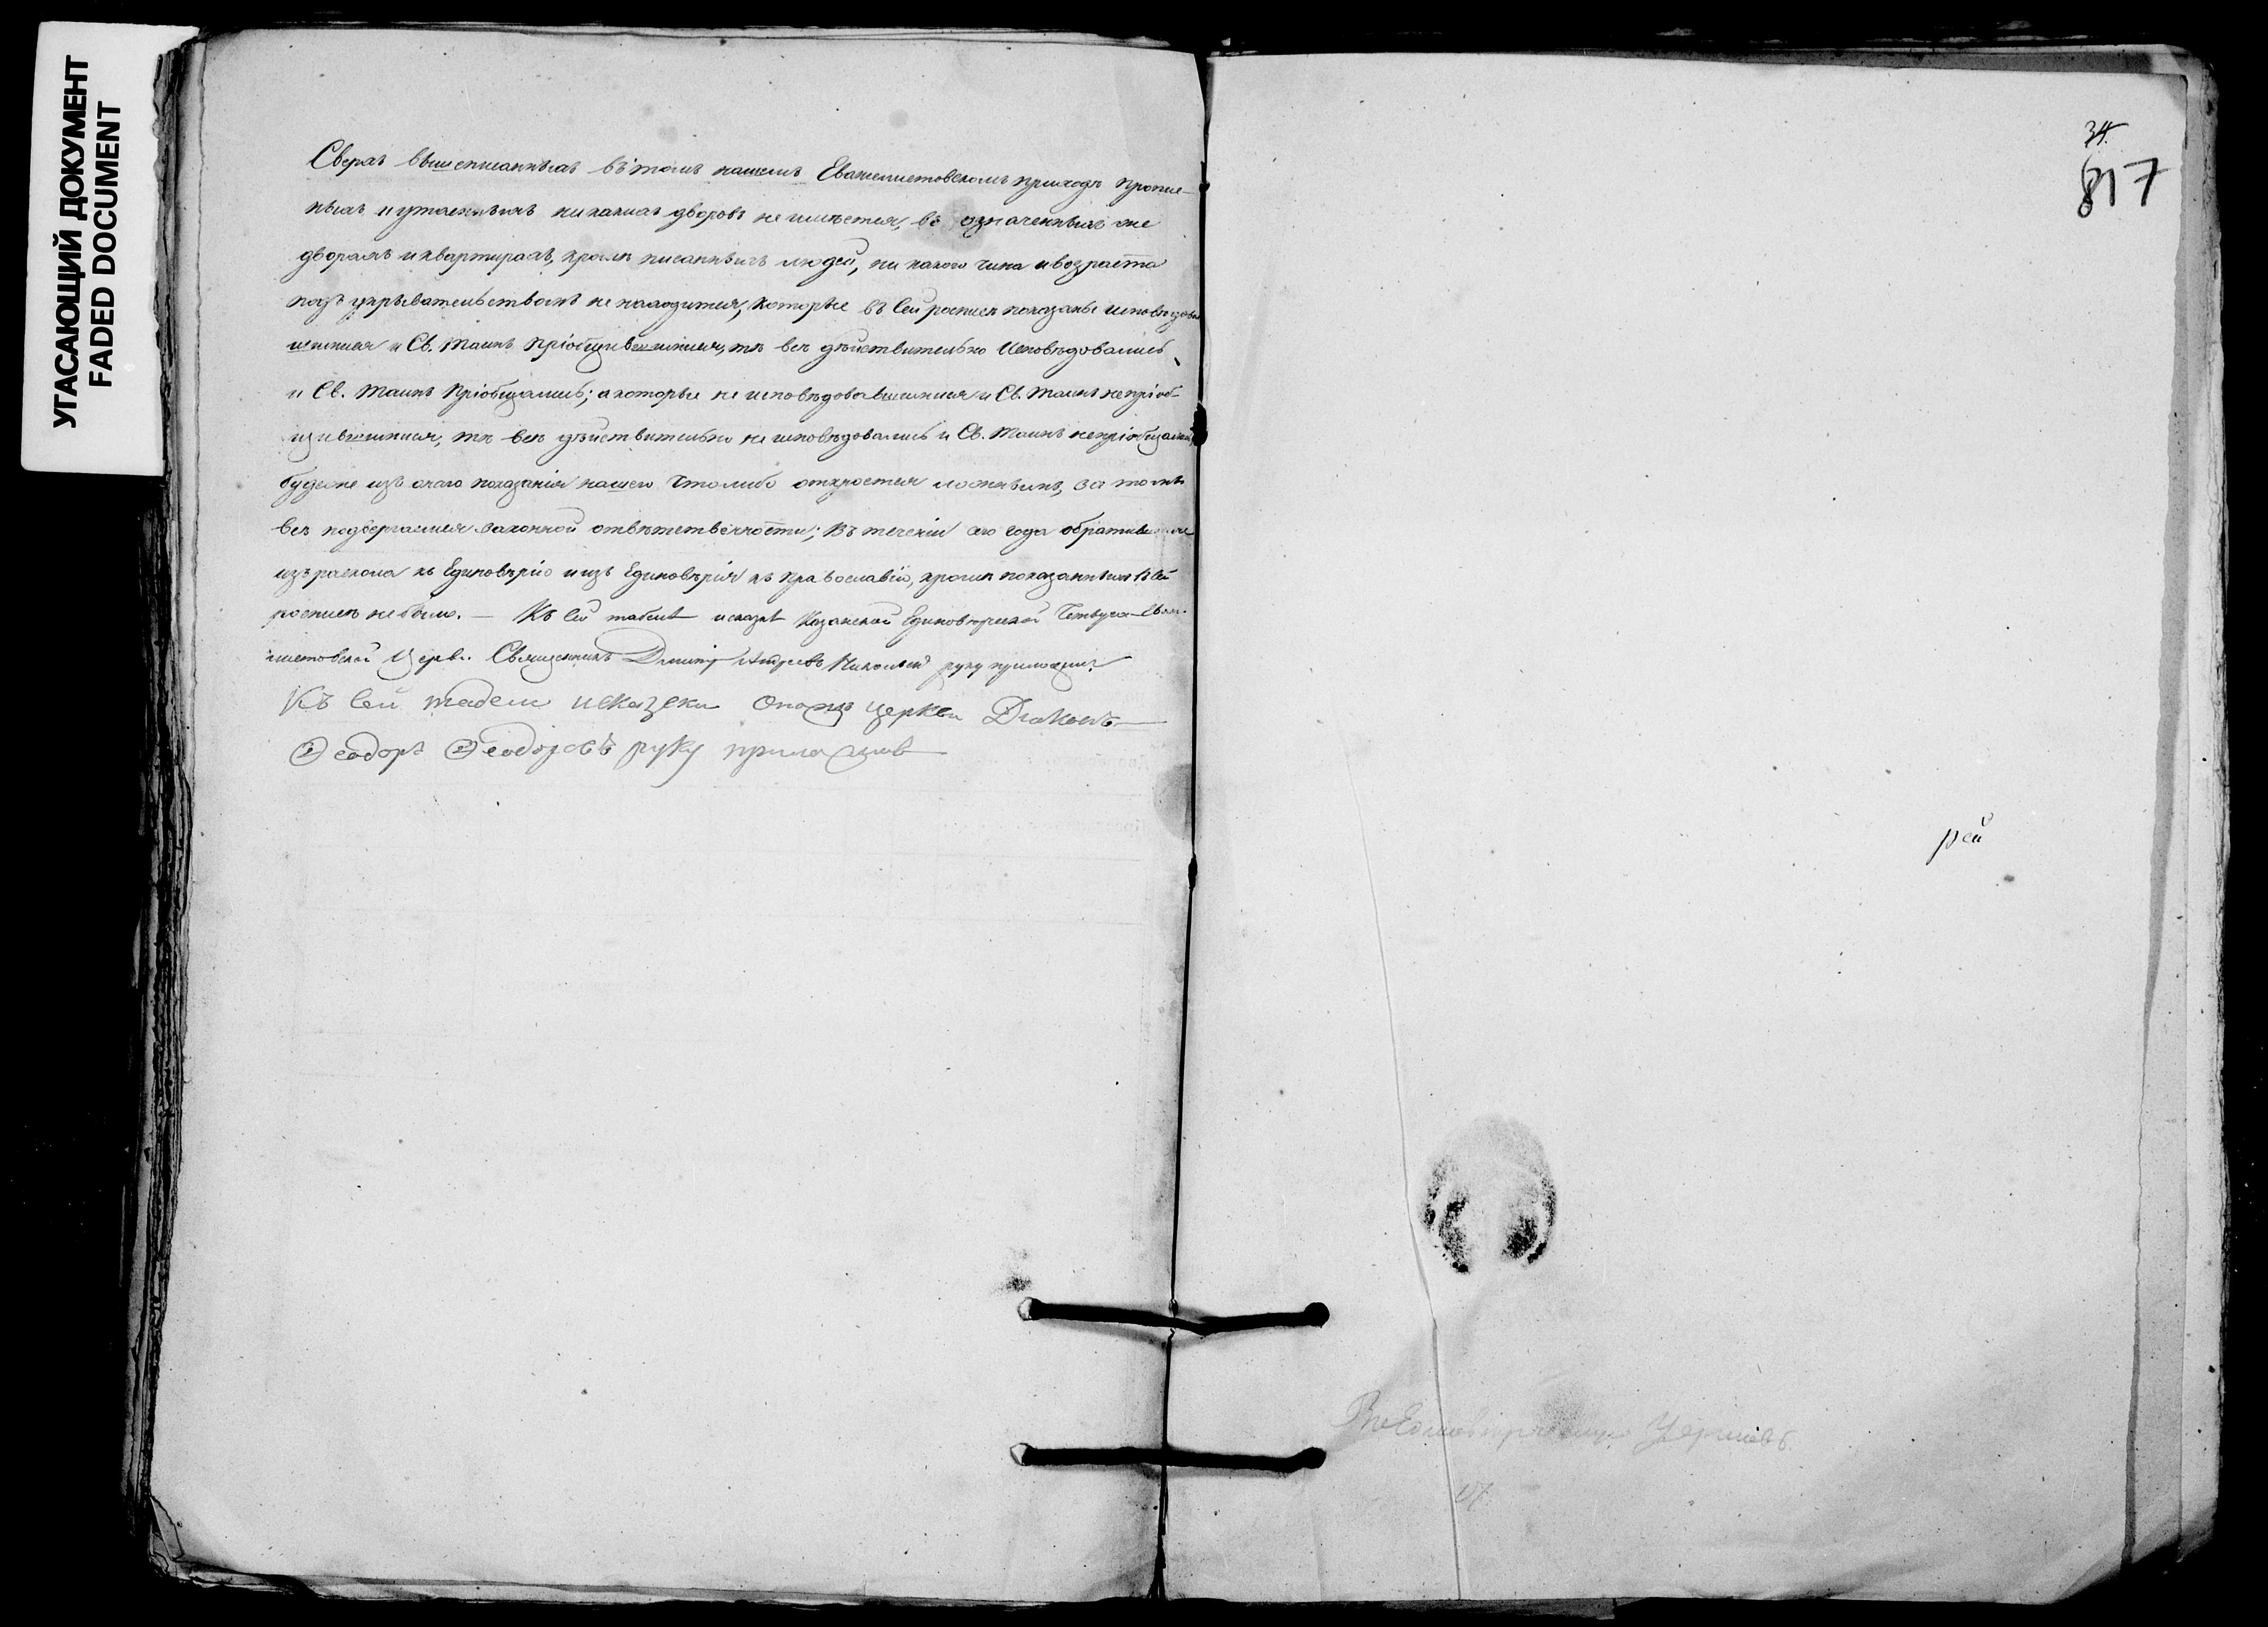 УГАСАЮЩИЙ ДОКУМЕНТ
FADED DOCUMENT
Сверхъ вышеписанныхъ въ томъ нашемъ Евангелистовскомъ приходѣ пропис-
ныхъ и утаенныхъ никакихъ дворовъ не имѣется, въ означенныхъ же
дворахъ и квартирахъ, кромѣ писанныхъ людей, ни какого чина и возраста
подъ укрывательствомъ не находится, которые въ сей росписи показаны исповѣдовав
шимися и Св. Таинъ пріобщившимися, тѣ всѣ дѣйствительно исповѣдовались
и Св. Таинъ пріобщались; а которые не исповѣдовавшимися и Св. Таинъ не пріоб-
щившимися, тѣ всѣ дѣйствительно не исповѣдовались и Св. Таинъ не пріобщались,
будеже изъ онаго показанія нашего что либо откроется ложнымъ, за то мы
всѣ подвергаемся законной отвѣтственности; Въ теченіи сего года обратившихся
изъ раскола къ Единовѣрію и изъ Единовѣрія къ православію, кромѣ показанныхъ въ сей
росписи не было. — Къ сей табели и сказкѣ Казанской Единовѣрческой Четвуро-Еван-
листовской Церкви Священникъ Димитрій Андреевъ руку приложилъ
Къ сей табели и сказки оной церкви Діаконъ
Ѳеодоръ Ѳеодоровъ руку приложилъ
34.
817
рей
Церквей